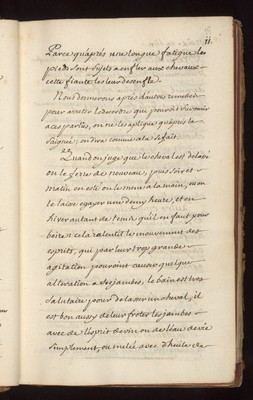 11.
Parce qu'après une longue fatigue les
pieds sont sujets a enfler aux chevaux
cette fiante les leur desenfle.
Nous donnerons après d'autres remedes
pour arreter le desordre qui pouroit survenir
a ces parties, on ne les aplique qu'après la
saignée; on dira comme cela se fait.
Quand on juge que le cheval est delassé
on le ferre de nouveau, puis soir et
matin en esté on le mene a la main, ou on
le laisse egayer une demy heure, et en
hiver autant de tems qu'il en faut pour
boire; cela ralentit le mouvement des
esprits, qui par leur trop grande
agitation pouroient causer quelque
alteration a ses jambes, le bain est tres
salutaire pour delasser un cheval, il
est bon aussy de leur froter les jambes
avec de l'esprit de vin ou de l'eau de vie
simplement, ou melée avec d'huile de